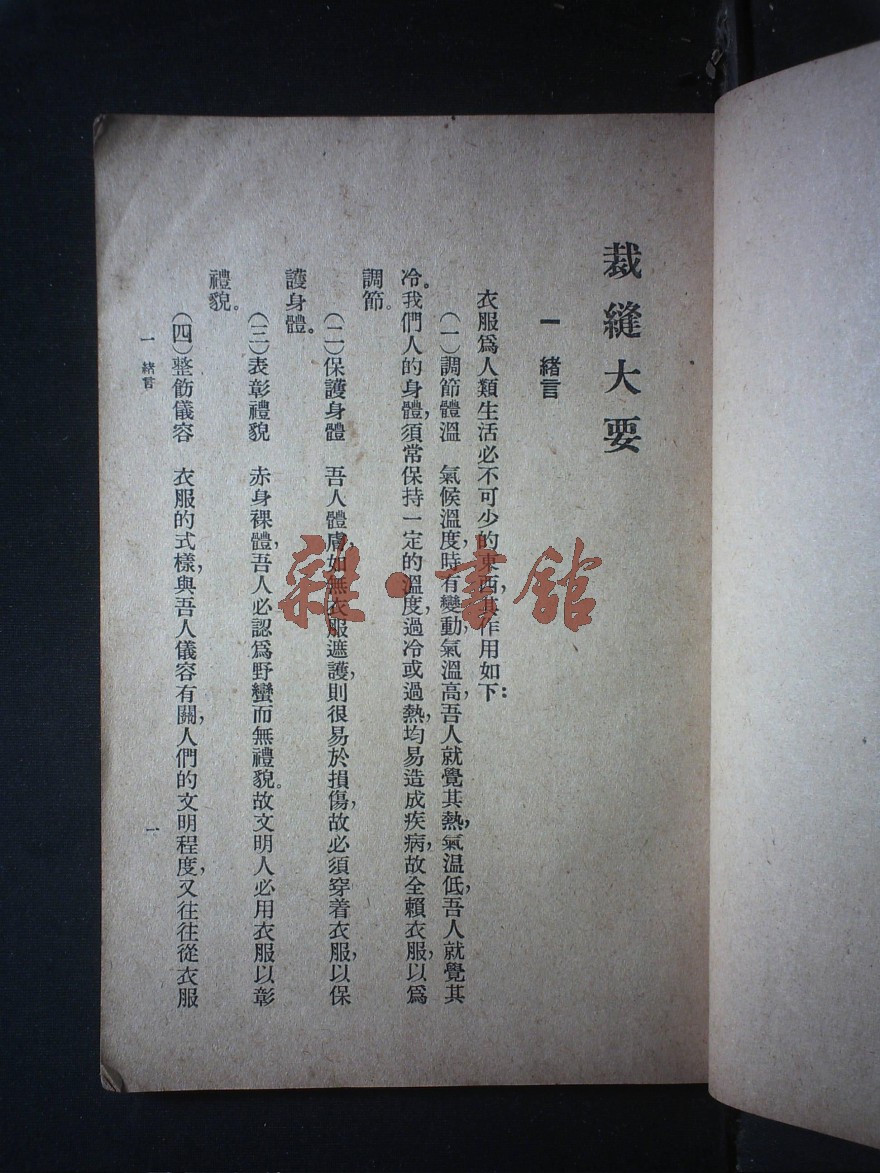 裁縫大要
一　緒言
衣服爲人類生活必不可少的東西，其作用如下：
（一）調節體溫　氣候溫度，時有變動，氣溫高，吾人就覺其熱，氣温低，吾人就覺其
冷。我們人的身體，須常保持一定的溫度，過冷或過熱，均易造成疾病，故全賴衣服，以爲
調節。
（二）保護身體　吾人體膚，如無衣服遮護，則很易於損傷，故必須穿着衣服，以保
護身體。
（三）表彰禮貌　赤身裸體，吾人必認爲野蠻而無禮貌。故文明人必用衣服以彰
禮貌。
（四）整飭儀容　衣服的式樣，與吾人儀容有關，人們的文明程度，又往往從衣服
一　緒言
一
雜·書館